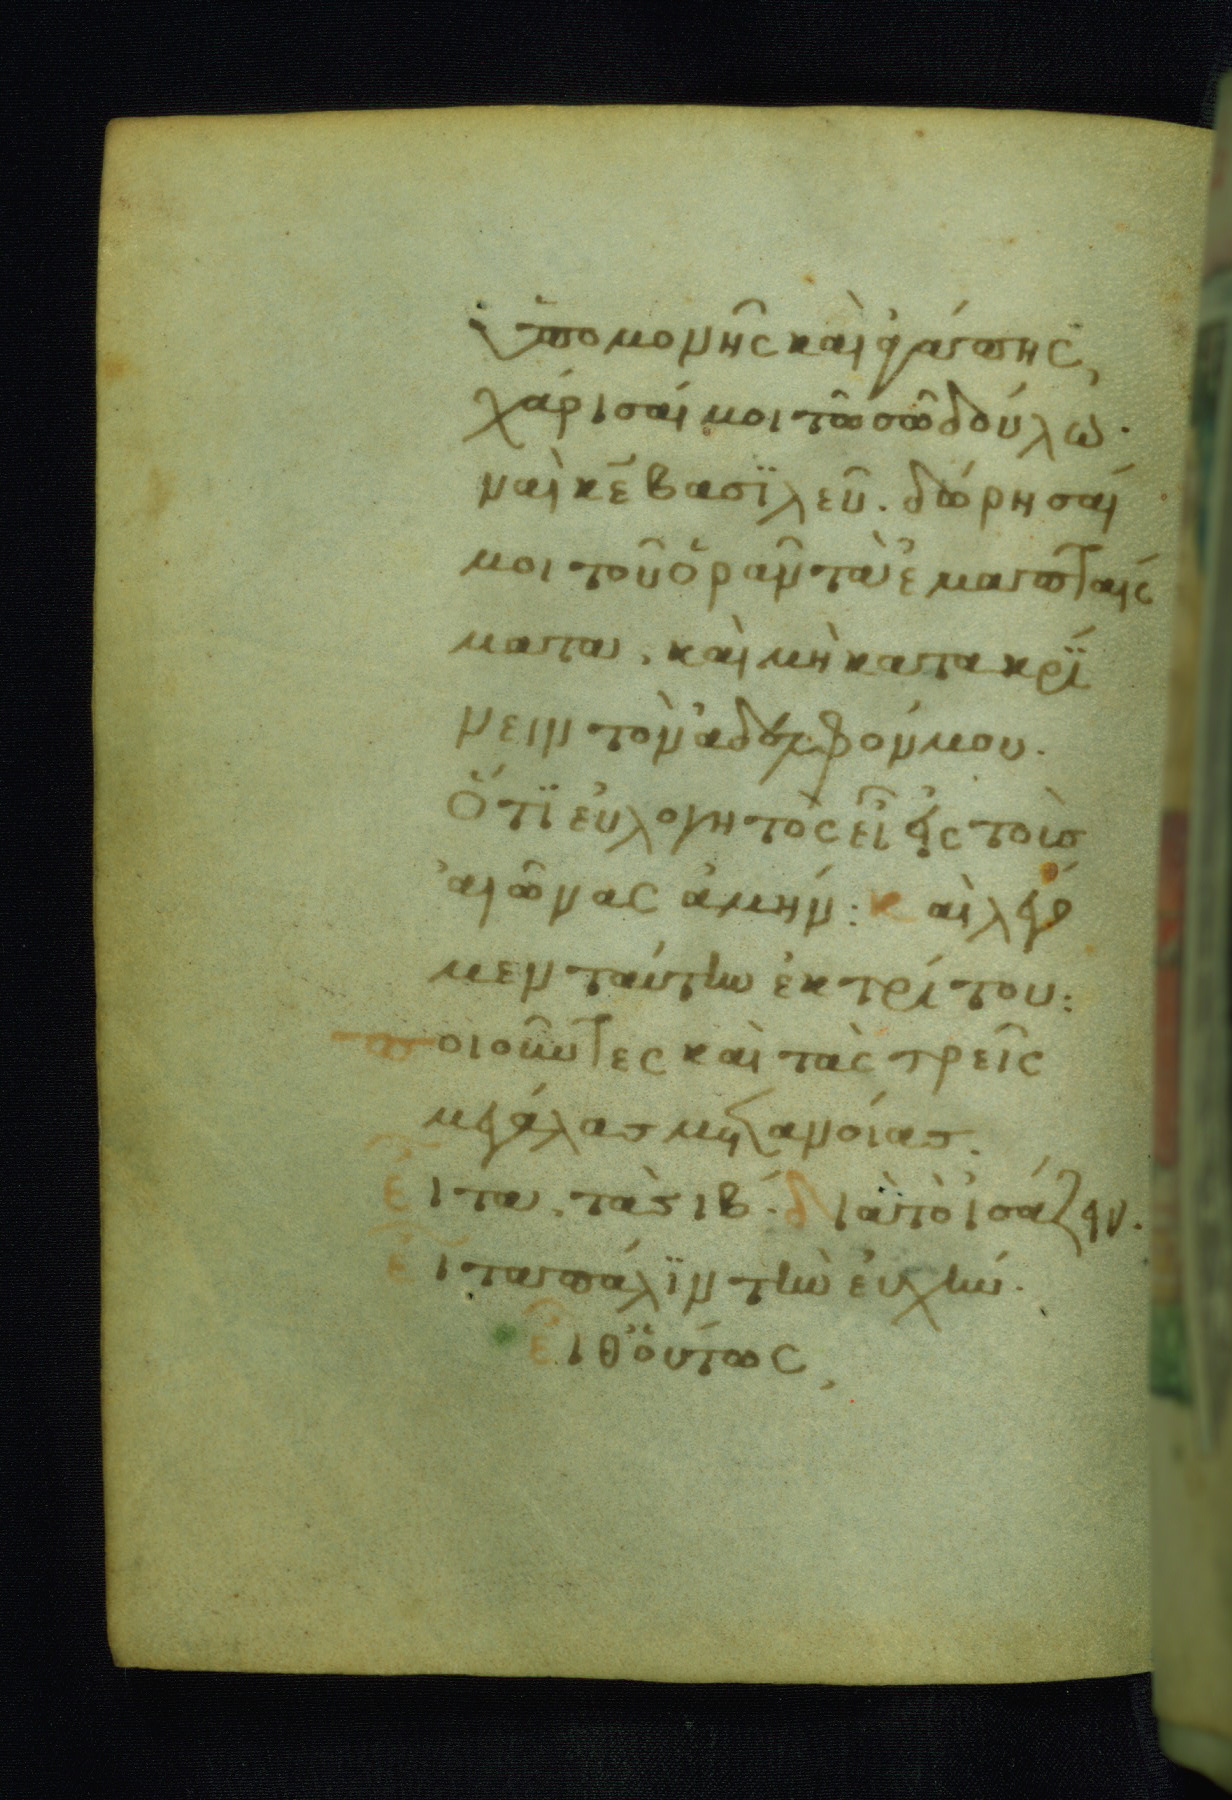 ὑπομονῆς καὶ ἀγάπης,
χάρισαί μοι τῶ σῶ δούλω·
ναὶ κ̅ε̅ βασϊλεῦ· δώρησαί
μοι τοῦ ὁρᾶν τὰ ἐμὰ πταίσ
ματα· καὶ μὴ κατακρί
νειν τὸν ἀδελφόν μου·
Ὅτϊ εὐλογητὸς εἶ εἰς τοὺσ
αἰῶνας ἀμήν: καὶ λέγο
μεν ταύτην ἐκ τρίτου:
ποιοῦντες καὶ τὰς τρεῖς
μεγάλας μετανοίας·
εἶτα· τὰς ιβ· διὰ τὸ ἰσάζειν·
εἶτα πάλϊν τὴν εὐχήν·
εἶθ' οὕτως,